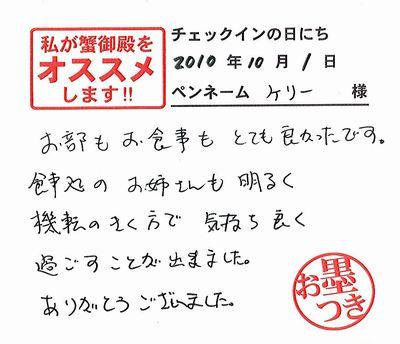 私が蟹御殿を
オススメ
します!!
チェックインの日にち
2010 年 10 月 1 日
ペンネーム ケリー 様
お部もお食事もとても良かったです。
食事処のお姉さんも明るく
機転のきく方で気持ち良く
過ごすことが出ました。
ありがとうございました。
お墨つき